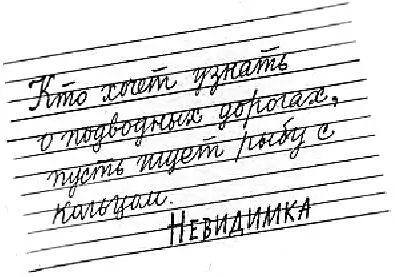 Кто хочет узнать
о подводных дорогах,
пусть ищет рыбу с
кольцом.
НЕВИДИМКА